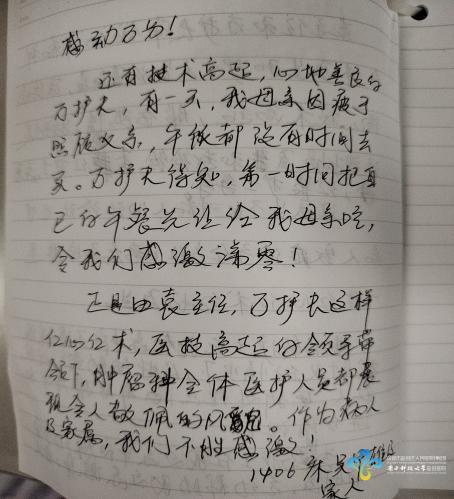 感动万分！
还有技术高超，心地善良的
万护长，有一天，我母亲因疲于
照顾父亲，午饭都没有时间去
买。万护长得知，第一时间把自
己的午餐先让给我母亲吃，
令我们感激涕零！
正是由袁主任，万护长这样
仁心仁术，医技高超的领导带
领下，肿瘤科全体医护人员都展
现令人敬佩的风貌。作为病人
及家属，我们不胜感激！
1406床吴 雄及
家人